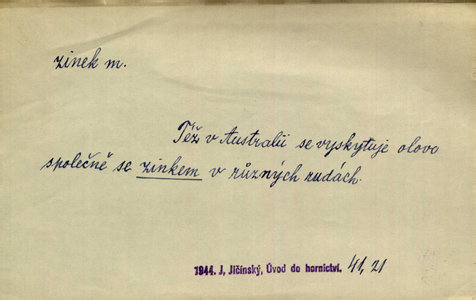 zinek m.
Též v Australii se vyskytuje olovo
společně se zinkem v různých rudách.
1944. J. Jičínský, Úvod do hornictví. 41, 21